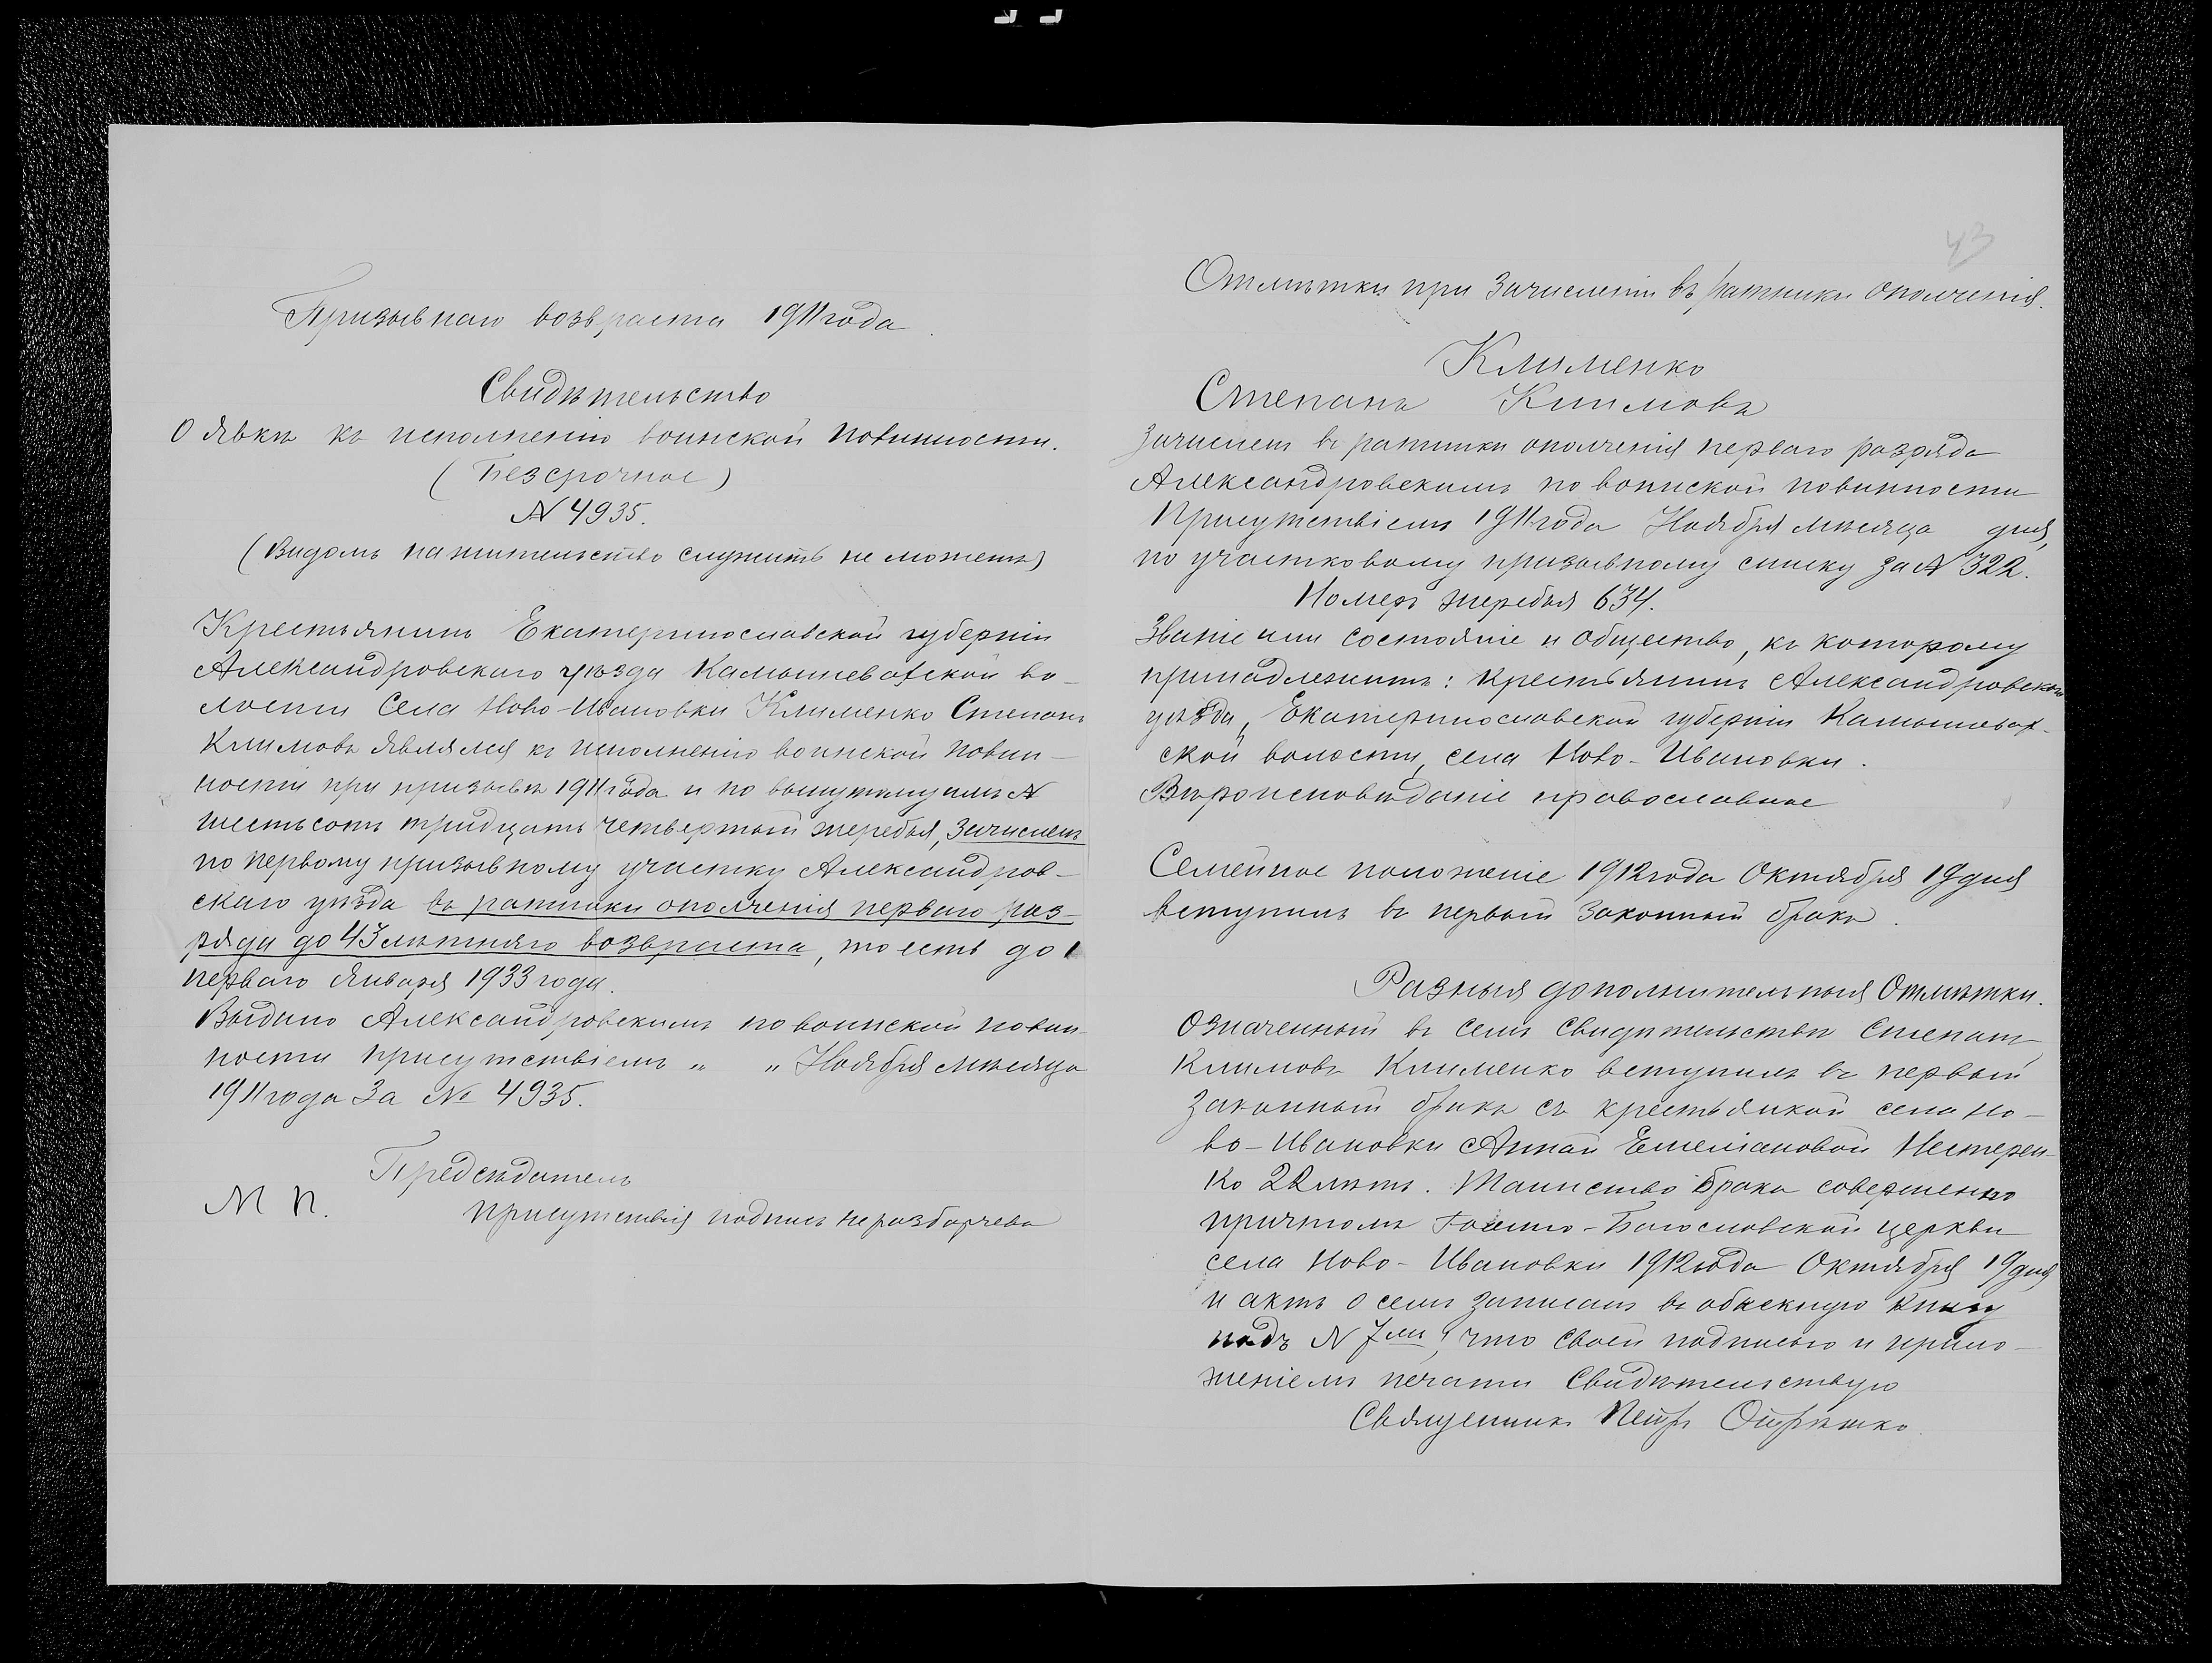 Призывнаго возвраста 1911 года.
Свидѣтельство
О явкѣ къ исполненію воинской повинности.
(Безсрочное)
№ 4935.
(Видомъ на жительство служить не можетъ)
Крестьянинъ Екатеринославской губерніи
Александровскаго уѣзда Камышеватской во-
лости Села Ново-Ивановки Клименко Степанъ
Климовъ являлся къ исполненію воинской повин-
ности при призывѣ 1911 года и по вынутому имъ №
шестьсотъ тридцать четвертый жеребья, зачисленъ
по первому призывному участку Александров-
скаго уѣзда въ ратники ополченія перваго раз-
ряда до 43 лѣтняго возвраста, то есть до 1
перваго Января 1933 года.
Выдано Александровскимъ по воинской повин-
ности присутствіемъ „ „ Ноября мѣсяца
1911 года За № 4935.
Предсѣдатель
М П. присутствія подпись неразборчева
43
Отмѣтки при Зачисленіи въ ратники ополченія.
Клименко
Степанъ Климовъ
Зачисленъ въ ратники ополченія перваго разряда
Александровскимъ по воинской повинности
Присутствіемъ 1911 года Ноября мѣсяца дня,
по участковому призывному списку за № 322.
Номеръ жеребья 634.
Званіе или состояніе и общество, къ которому
принадлежитъ: крестьянинъ Александровскаго
уѣзда, Екатеринославской губерніи Камышеват-
ской волости, села Ново-Ивановки.
Вѣроисповѣданіе православное
Семейное положеніе 1912 года Октября 19 дня
вступилъ въ первый законный бракъ.
Разныя дополнительныя Отмѣтки.
Означенный въ семъ свидѣтельствѣ Степанъ
Климовъ Клименко вступилъ въ первый
законный бракъ съ крестьянкой села Но-
во-Ивановки Анной Емеліановой Нестерен-
ко 22 лѣтъ. Таинство Брака совершенно
причтомъ Іоанно-Богословской церкви
села Ново-Ивановки 1912 года Октября 19 дня
и актъ о семъ записанъ въ обыскную книгу
подъ № 7мъ, что своей подписью и прило-
женіемъ печати Свидѣтельствую
Священникъ Петръ